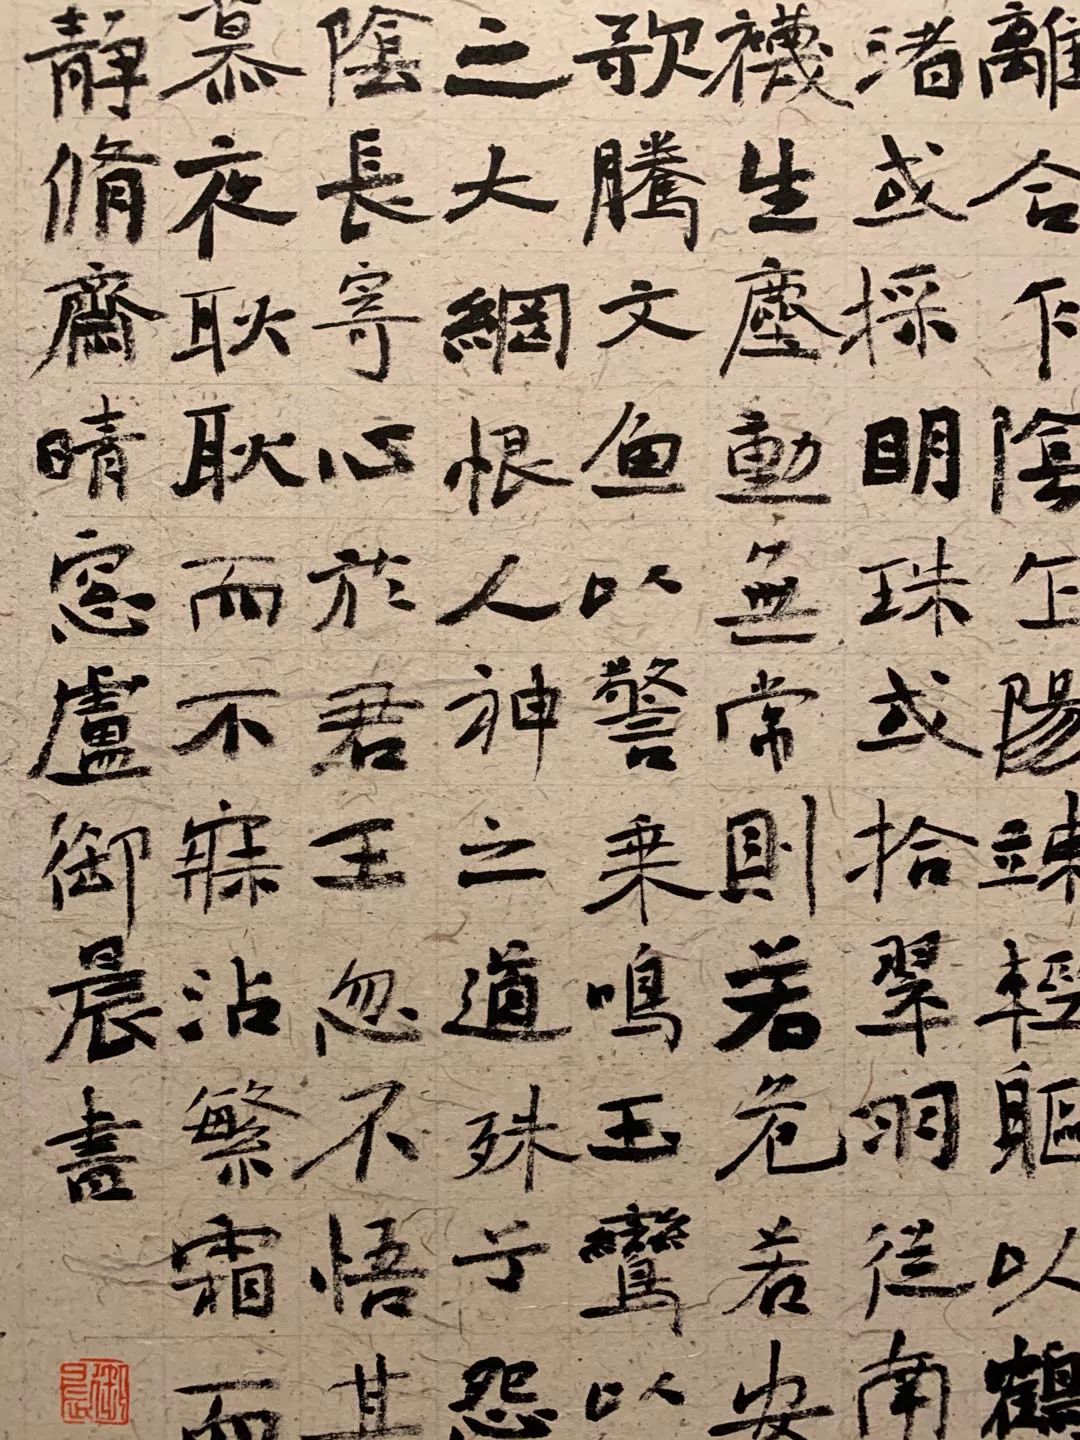 離合乍陰乍陽竦輕軀以鶴
渚或採明珠或拾翠羽從南
襪生塵動無常則若危若安
歌騰文魚以警乗鳴玉鸞以
之大網恨人神之道殊兮怨
陰長寄心於君王忽不悟其
慕夜耿耿而不寐沾繁霜而
静脩齋晴窓盧御晨書
御晨